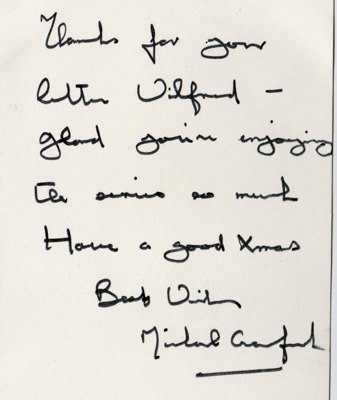 Thanks for your
letter Wilfred -
glad you're enjoying
the series so much
Have a good Xmas
Best Wishes
Michael Crawford